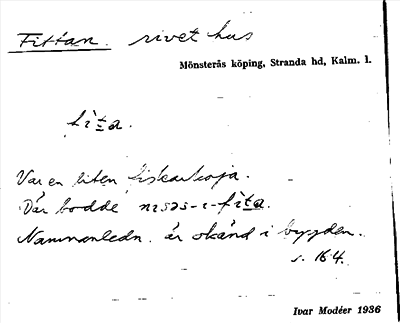 Fittan. rivet hus
Mönsterås köping, Stranda hd, Kalm. l.
fìta.
Var en liten fiskarkoja.
Där bodde nisəs-i-fìta.
Namnanledn. är okänd i bygden.
s. 164.
Ivar Modéer 1936